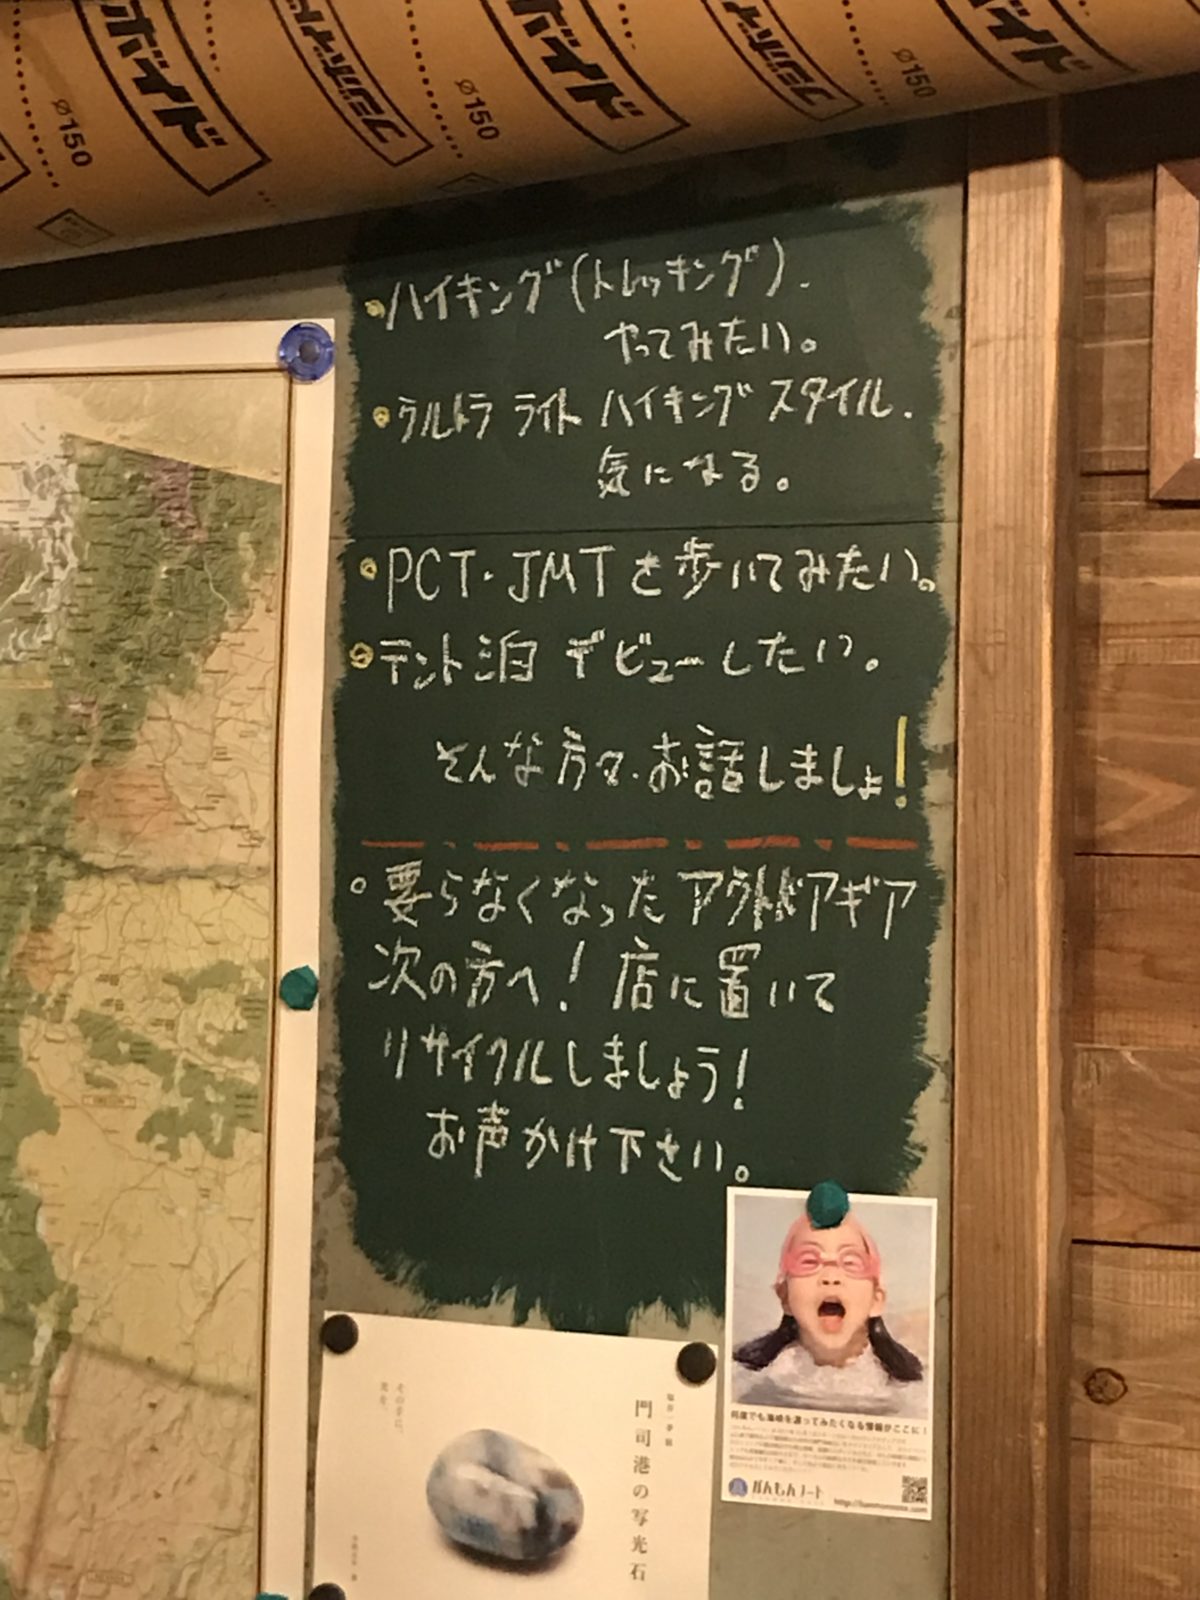 ボイド
ø150
ボイド
ø150
ø150
・ハイキング(トレッキング).
やってみたい。
・ウルトラ ライト ハイキング スタイル.
気になる。
・PCT・JMTを歩いてみたい。
・テント泊 デビューしたい。
そんな方々.お話しましょ!
。要らなくなった アウトドアギア
次の方へ! 店に置いて
リサイクルしましょう!
お声かけ下さい。
門司港の写光石
何度でも海峡を渡ってみたくなる情報がここに!
かんもんノート